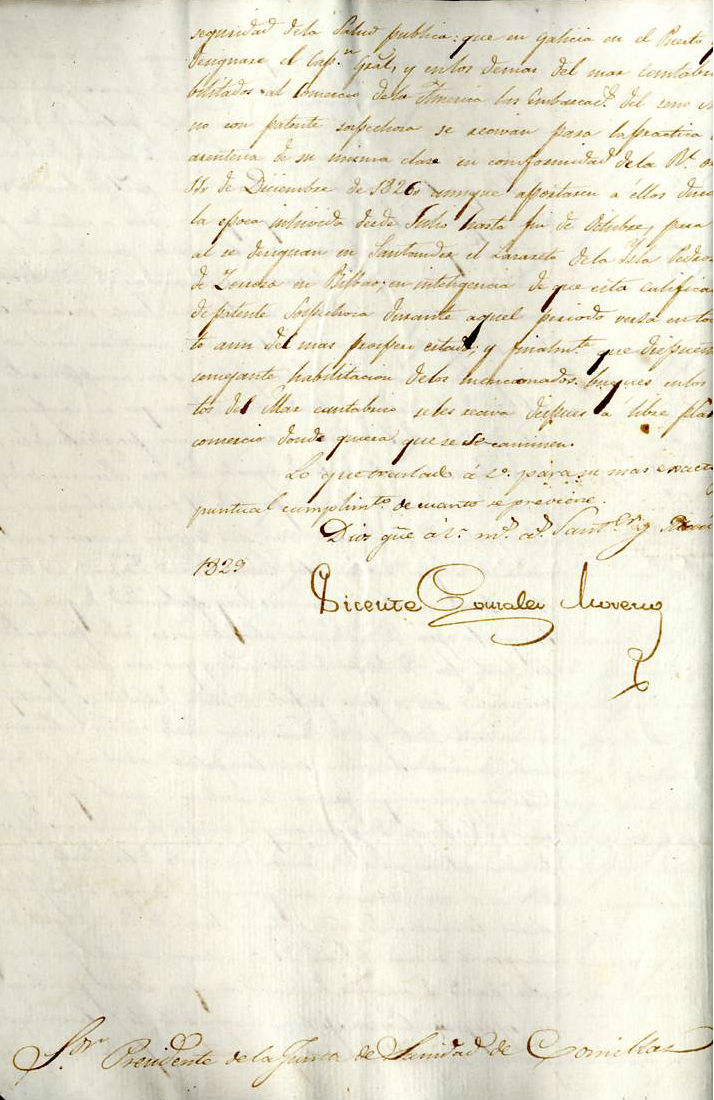 seguridad de la Salud publica: que en Galicia en el Puerto
designare el Cap.n Gral, y en los demas del mar cantabr
bilitados al Comercio de la America las Embarcac.s del seno
no con patente sospechosa se recivan para la practica
arenteria de su misma clase en conformidad de la R.l
de Diciembre de 1826 aunque aportasen a ellos
la epoca inhivida desde Julio hasta fin de Octubre, para
al se designan en Santander el Lazareto de la Isla Pedro
de Zorroza en Bilbao; en inteligencia de que esta califica
de patente Sospechosa durante aquel periodo versa en
to aun del mas prospero estado, y finalm.te que
semejante habilitacion de los mencionados buques en los
tos del Mar cantabrico se les reciva despues a libre pla
comercio donde quiera que se encaminen.
Lo que traslado á V. para su mas exacto
puntual cumplim.to de cuanto se previene.
Dios gue á V. m.s a.s Sant.r
1829
Vicente Gonzalez Moreno
S.or Presidente de la Junta de Sanidad de Comillas